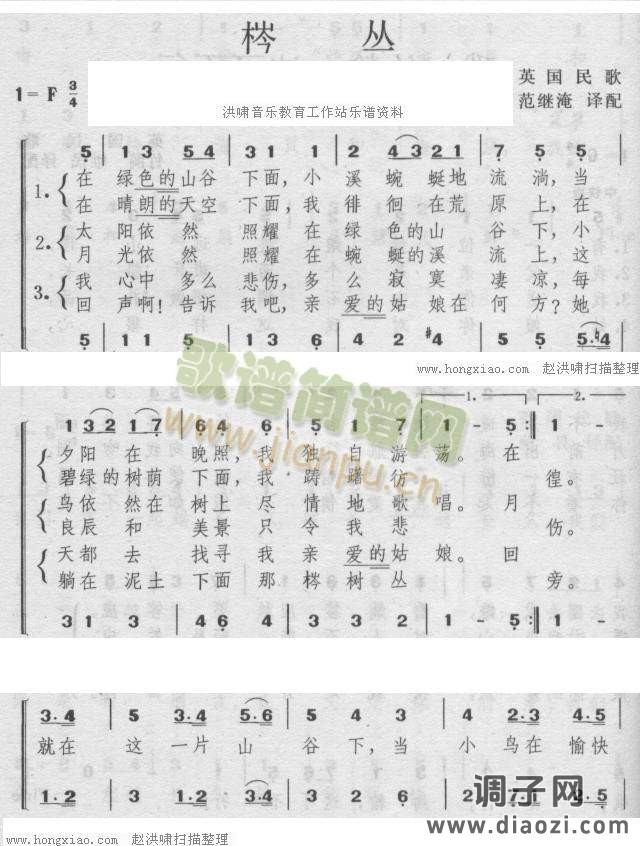 梣 丛
英国民歌
1=F 3/4
范继淹 译配
洪啸音乐教育工作站乐谱资料
5 | 1 3 5 4 | 3 1 1 | 2 4 3 2 1 | 7 5 5 |
1. 在 绿色的山谷 下面，小 溪 蜿 蜒地 流 淌，当
在 晴朗的天空 下面，我 徘 徊 在荒 原 上，在
2. 太 阳依 然 照耀 在 绿 色的山 谷 下，小
月 光依 然 照耀 在 蜿 蜒的溪 流 上，这
3. 我 心中 多么 悲伤，多 么 寂 寞 凄 凉，每
回 声啊！告诉 我吧，亲 爱的姑 娘在 何 方？她
5 | 1 1 5 5 | 1 3 6 | 4 2 #4 | 5 5 5·♮4
www.hongxiao.com 赵洪啸扫描整理
1. 2.
1 3 2 1 7 | 6 4 6 | 5 1 7 | 1 - 5 :| 1 -
夕 阳 在 晚 照，我 独 自 游 荡。在 徨。
碧 绿 的 树 荫 下 面，我 踌 躇 彷
鸟 依 然 在 树 上 尽 情 地 歌 唱。月 伤。
良 辰 和 美 景 只 令 我 悲
天 都 去 找 寻 我 亲 爱的 姑 娘。回 旁。
躺 在 泥 土 下 面 那 梣 树 丛
3 1 3 | 4 6 4 | 3 3 2 | 1 - 5 :| 1 -
歌谱简谱网
www.jianpu.cn
3·4 | 5 1 7·1 | 3 1 5·6 | 5 4 3 | 4 2·3 4·5
就在 这 一片 山 谷 下，当 小 鸟在 愉快
1·2 | 3 3 2·3 | 1 1 3·4 | 3 2 1 | 2
调子网
www.diaozi.com
www.hongxiao.com 赵洪啸扫描整理